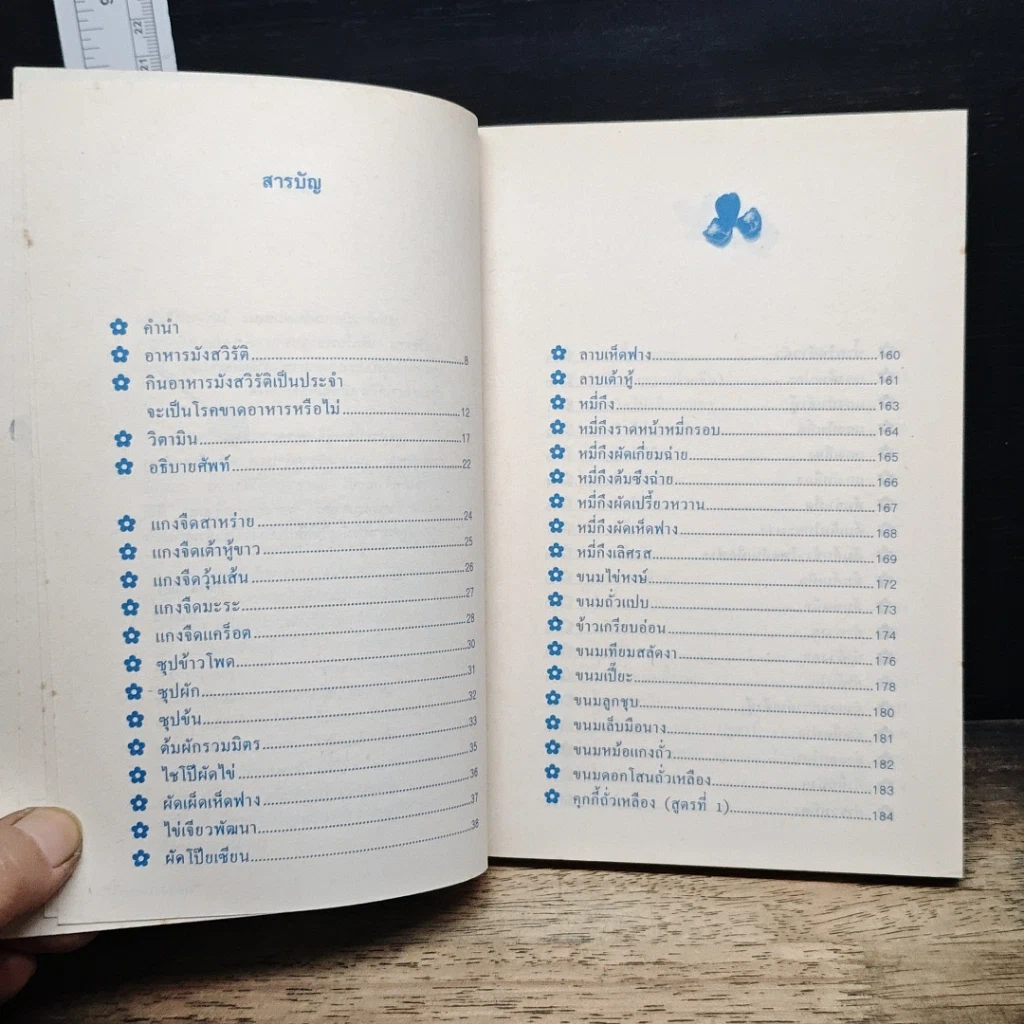 22
21
สารบัญ
คำนำ
อาหารมังสวิรัติ 8
กินอาหารมังสวิรัติเป็นประจำ
จะเป็นโรคขาดอาหารหรือไม่ 12
วิตามิน 17
อธิบายศัพท์ 22
แกงจืดสาหร่าย 24
แกงจืดเต้าหู้ขาว 25
แกงจืดวุ้นเส้น 26
แกงจืดมะระ 27
แกงจืดแคร็อต 28
ซุปข้าวโพด 30
ซุปผัก 31
ซุปข้น 32
ต้มผักรวมมิตร 33
ไชโป๊ผัดไข่ 35
ผัดเผ็ดเห็ดฟาง 36
ไข่เจียวพัฒนา 37
ผัดโป๊ยเซียน 38
ลาบเห็ดฟาง 160
ลาบเต้าหู้ 161
หมี่กึง 163
หมี่กึงราดหน้าหมี่กรอบ 164
หมี่กึงผัดเกี่ยมฉ่าย 165
หมี่กึงต้มซึงฉ่าย 166
หมี่กึงผัดเปรี้ยวหวาน 167
หมี่กึงผัดเห็ดฟาง 168
หมี่กึงเลิศรส 169
ขนมไข่หงษ์ 172
ขนมถั่วแปบ 173
ข้าวเกรียบอ่อน 174
ขนมเทียมสลัดงา 176
ขนมเปี๊ยะ 178
ขนมลูกชุบ 180
ขนมเล็บมือนาง 181
ขนมหม้อแกงถั่ว 182
ขนมดอกโสนถั่วเหลือง 183
คุกกี้ถั่วเหลือง (สูตรที่ 1) 184